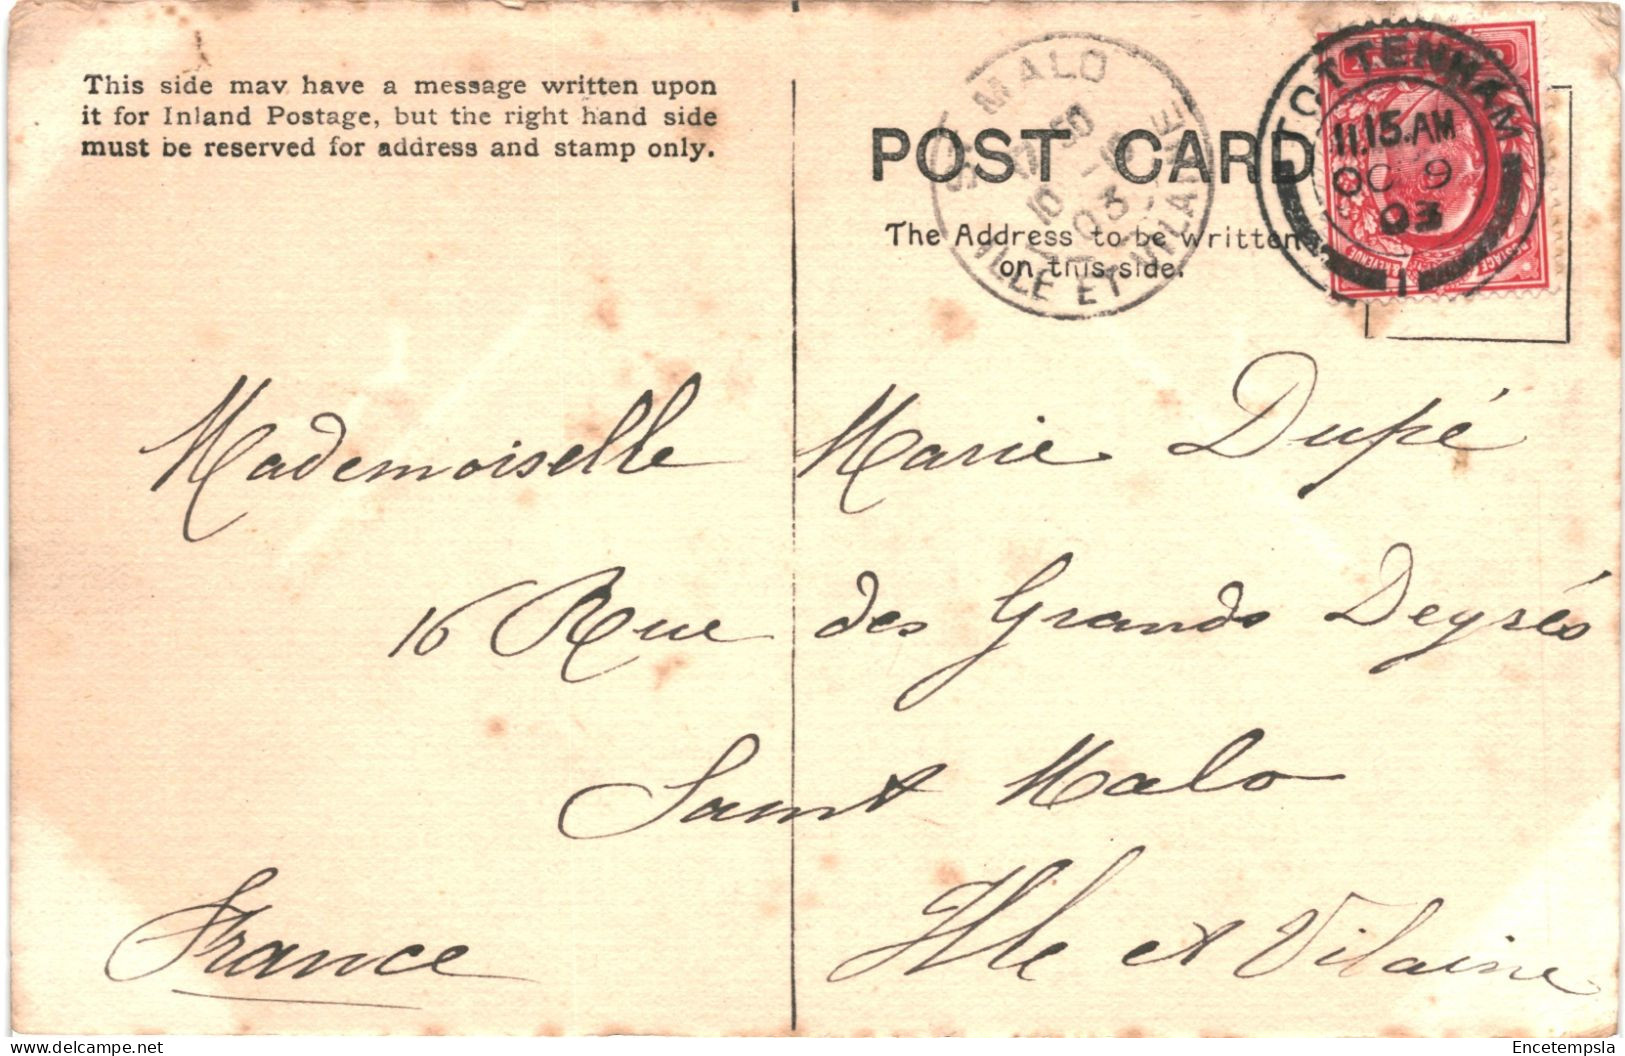 This side may have a message written upon
it for Inland Postage, but the right hand side
must be reserved for address and stamp only.
POST CARD
The Address to be written
on this side.
TOTTENHAM
11.15.AM
OC 9
03
1
POSTAGE & REVENUE
MALO
ILLE ET-VILAINE
10
03
Mademoiselle Marie Dupé
16 Rue des Grands Degrés
Saint Malo
Ille et Vilaine
France
Encetempsla